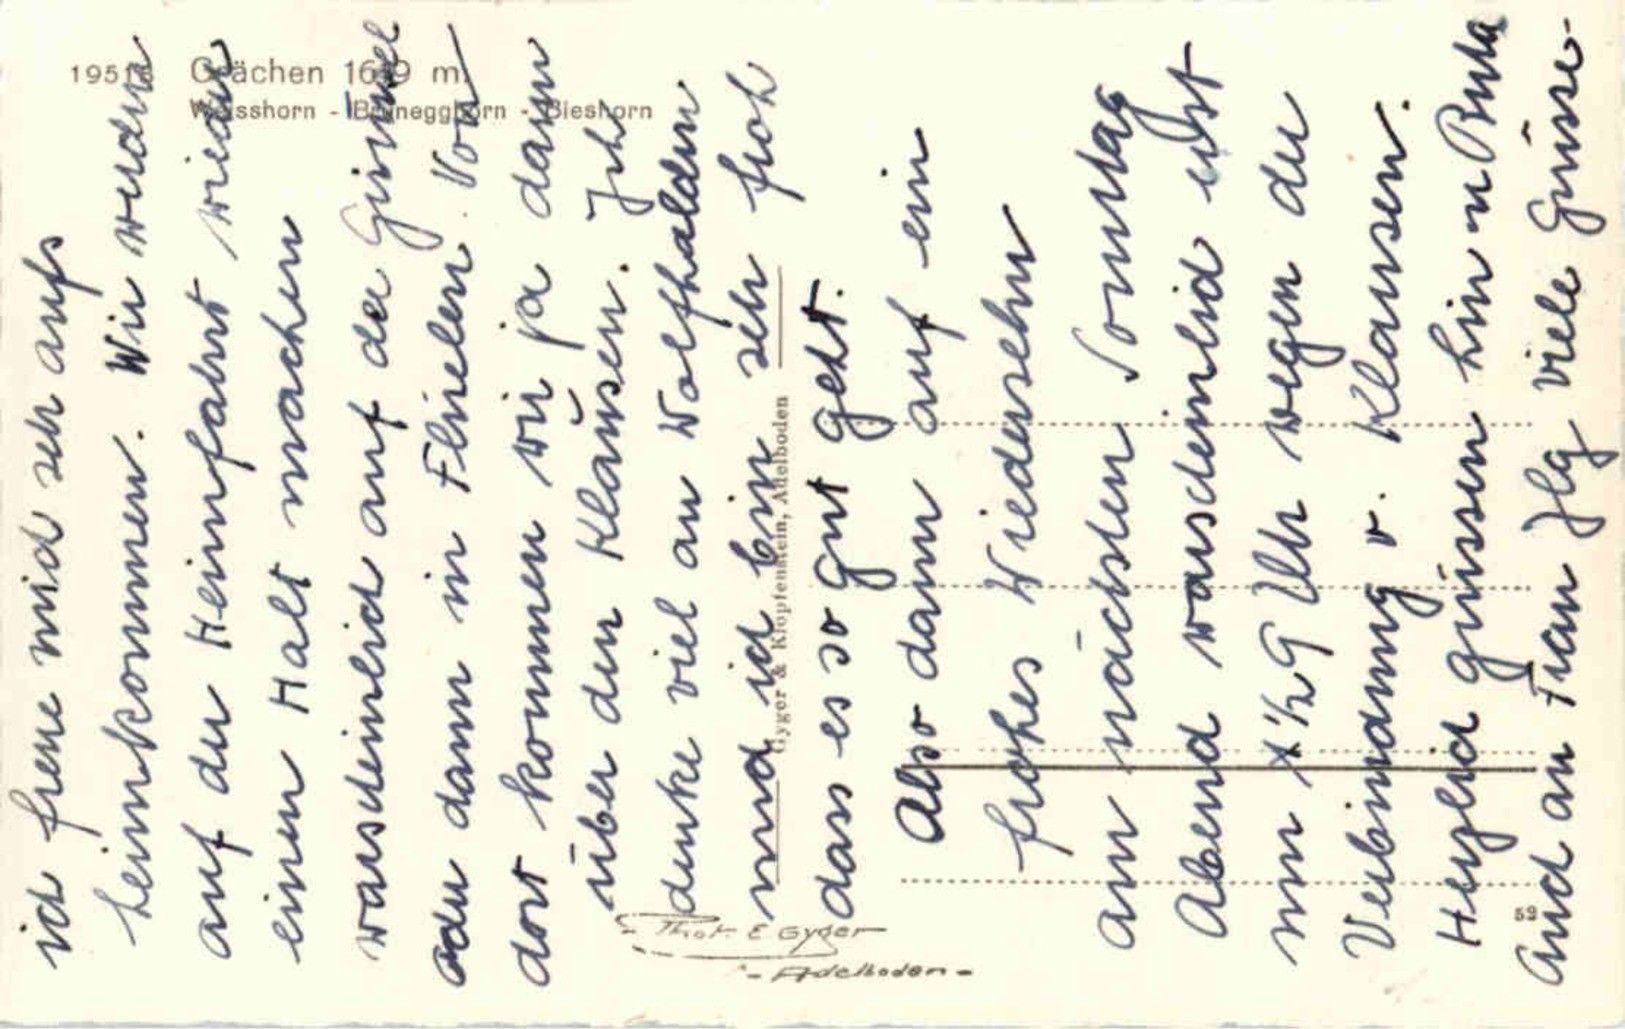 19518 Grächen 1619 m.
Weisshorn - Brunegghorn - Bieshorn
ich freue mich sehr aufs
heimkommen. Wir werden
auf der Heimfahrt wieder
einen Halt machen
warscheinlich auf der Grimsel
oder dann in Flüelen. Von
dort kommen wir ja dann
über den Klausen. Ich
denke viel an Wolfhalden
und ich bin sehr froh
dass es so gut geht.
Also dann auf ein
frohes Wiedersehn
am nächsten Sonntag
Abend warscheinlich erst
um ½ 9 Uhr wegen der
Verbindung v. Klausen.
Herzlich grüssen hin u
Auch an Frau Ilg viele Grüsse-
Gyger & Klopfenstein, Adelboden
Phot. E Gyger
- Adelboden -
59